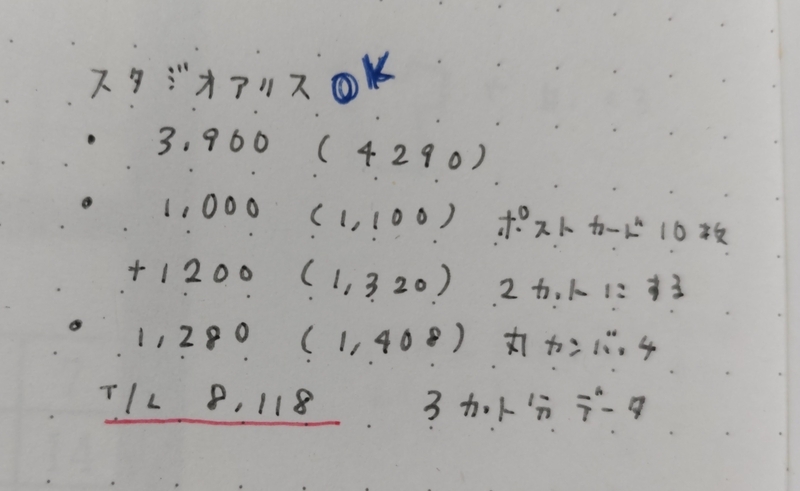 スタジオアリス OK
・ 3,900 (4290)
・ 1,000 (1,100) ポストカード10枚
+1200 (1,320) 2カットにする
・ 1,280 (1,408) 丸カンバッチ
T/L 8,118 3カット分データ